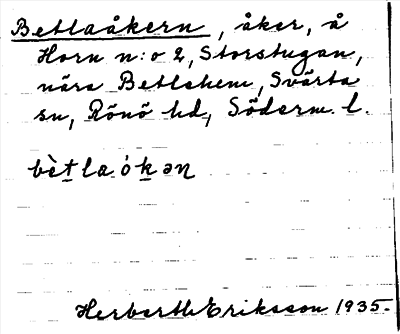 Betlaåkern, åker, å
Horn n:o 2, Storstugan,
nära Betlehem, Svärta
sn, Rönö hd, Söderm. l.
bètlaókəɳ
Herbert Eriksson 1935.